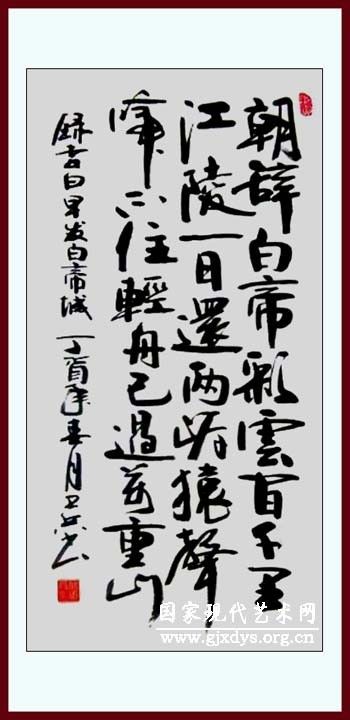 朝辞白帝彩雲间千里
江陵一日還两岸猿聲
啼不住輕舟已過萬重山
録李白早发白帝城 丁酉年春月
国家现代艺术网
www.gjxdys.org.cn